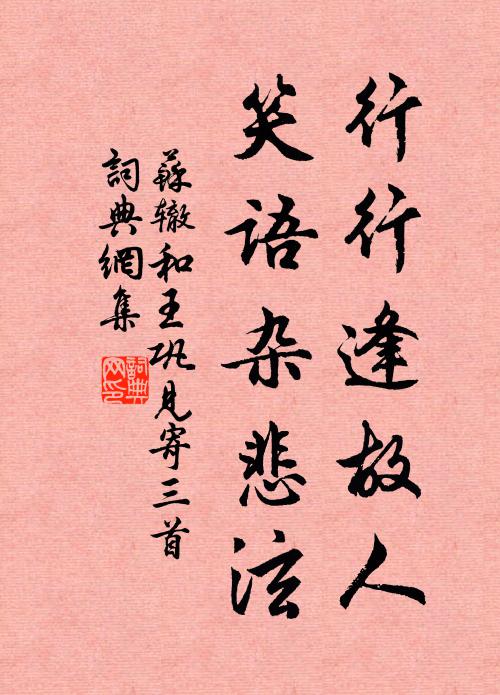 行行逢故人
笑語杂悲泫
蘇辙和王巩見寄三首
詞典網集
詞典网印